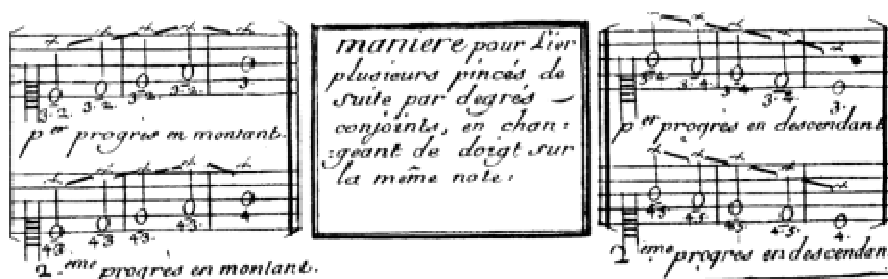 3·2 3·2 3·2 3·2 3·
p.er progrès en montant.
43· 43· 43· 43· 4
2.eme progrès en montant.
maniere pour Lier
plusieurs pincés de
suite par degrés
conjoints, en chan:
:geant de doigt sur
la même note:
3·2 3·4 3·4 3·4 3·
p.er progrès en descendant
45· 45· 45· 45· 4·
2.eme progrès en descendan